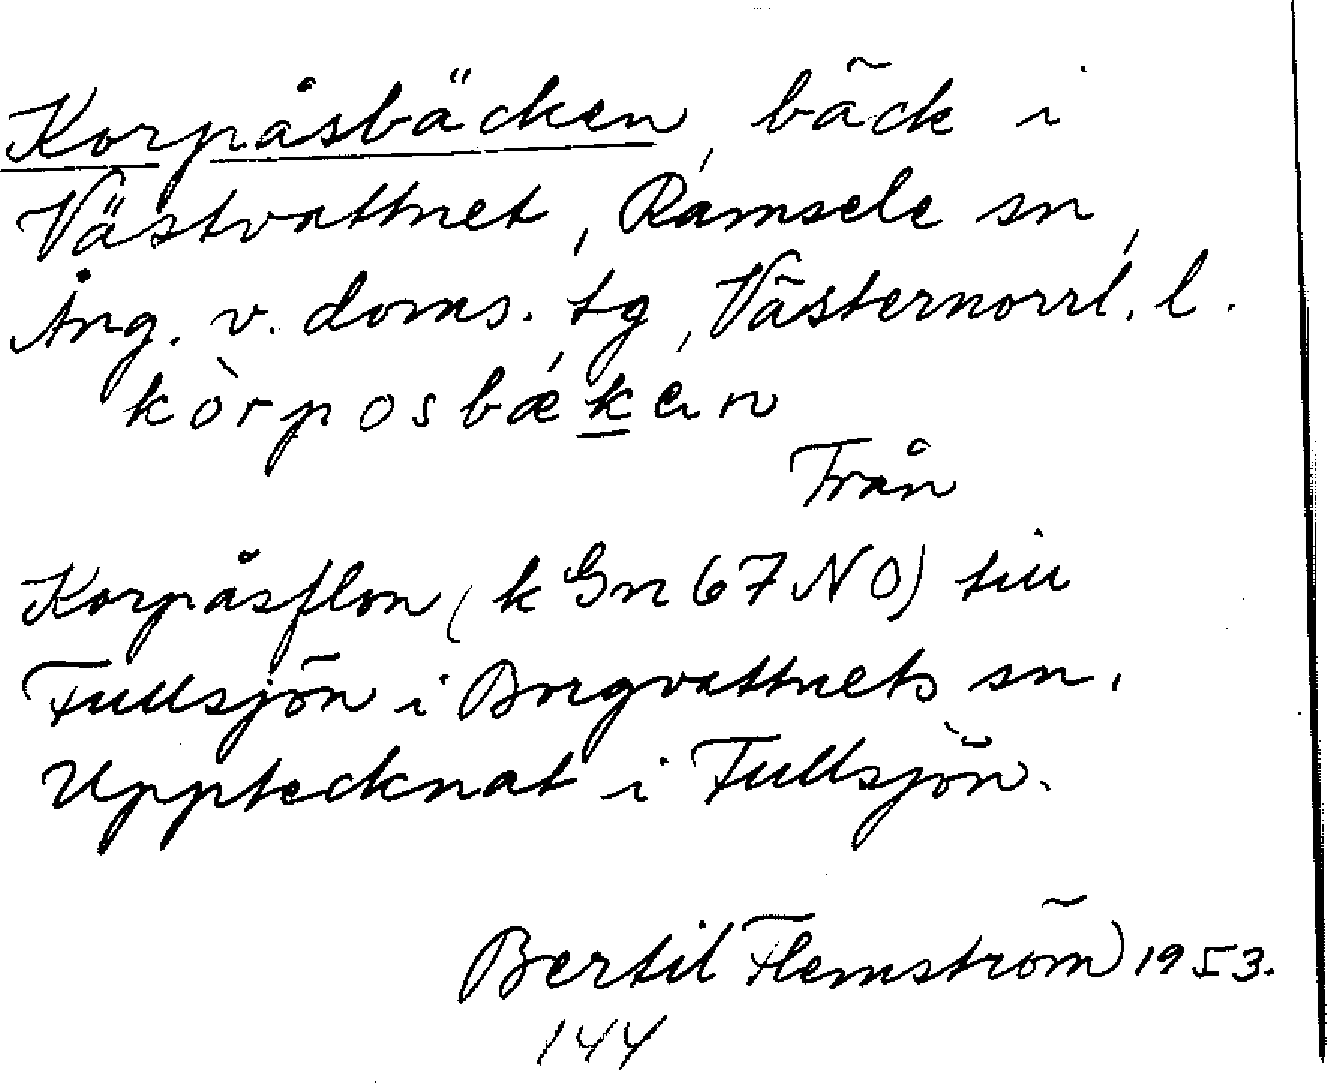 Korpåsbäcken, bäck i
Västvattnet, Ramsele sn,
Ång. v. doms. tg, Västernorrl. l.
kòrposbǽkan
Från
Korpåsflon (k Gn 67 NO) till
Fullsjön i Borgvattnets sn.
Upptecknat i Fullsjön.
Bertil Flemström 1953.
144